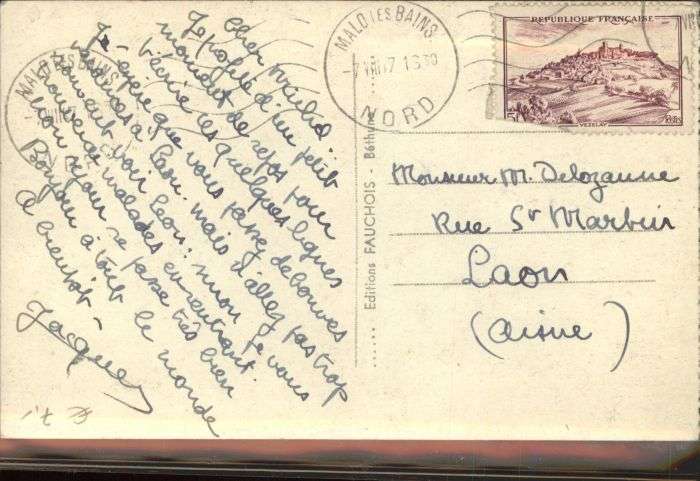 Cher Michel :
Je profite d'un petit
moment de repos pour
t'écrire ces quelques lignes
J'espère que vous passez de bonnes
vacances à Laon. mais n'allez pas trop
souvent voir Leon : sinon je vous
trouverais malades en rentrant.
Mon séjour se passe très bien
Bonjour à tout le monde
A bientôt
Jacques
Editions FAUCHOIS - Béthune
MALO LES BAINS
-7 VIII 47 18 30
NORD
MALO LES BAINS
REPUBLIQUE FRANÇAISE
5F
VEZELAY
POSTES
Monsieur M. Delozanne
Rue St Martin
Laon
(Aisne)